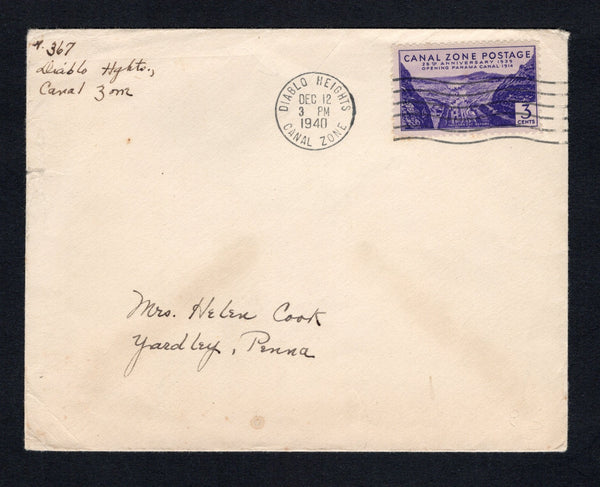 367
Diablo Hghts.,
Canal Zone
DIABLO HEIGHTS
DEC 12
3 PM
1940
CANAL ZONE
CANAL ZONE POSTAGE
25TH ANNIVERSARY 1939
OPENING PANAMA CANAL 1914
3
CENTS
Mrs. Helen Cook
Yardley, Penna